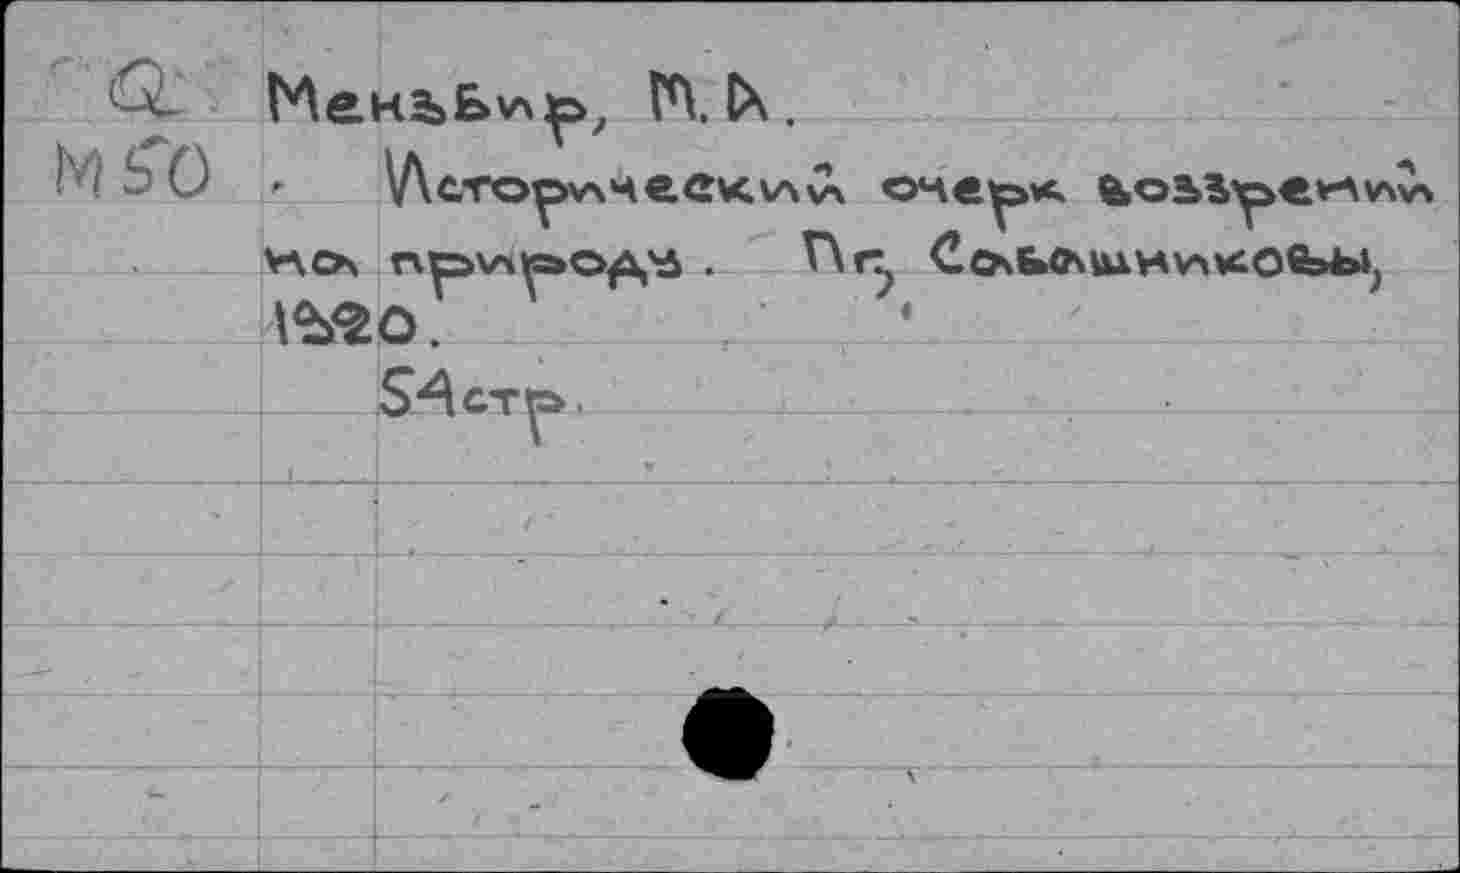 Q Менѕбир, М.А.
M50 Исторический очерк воззрений
на природу. Пг, Сабашниковы,
1920.
54 стр.